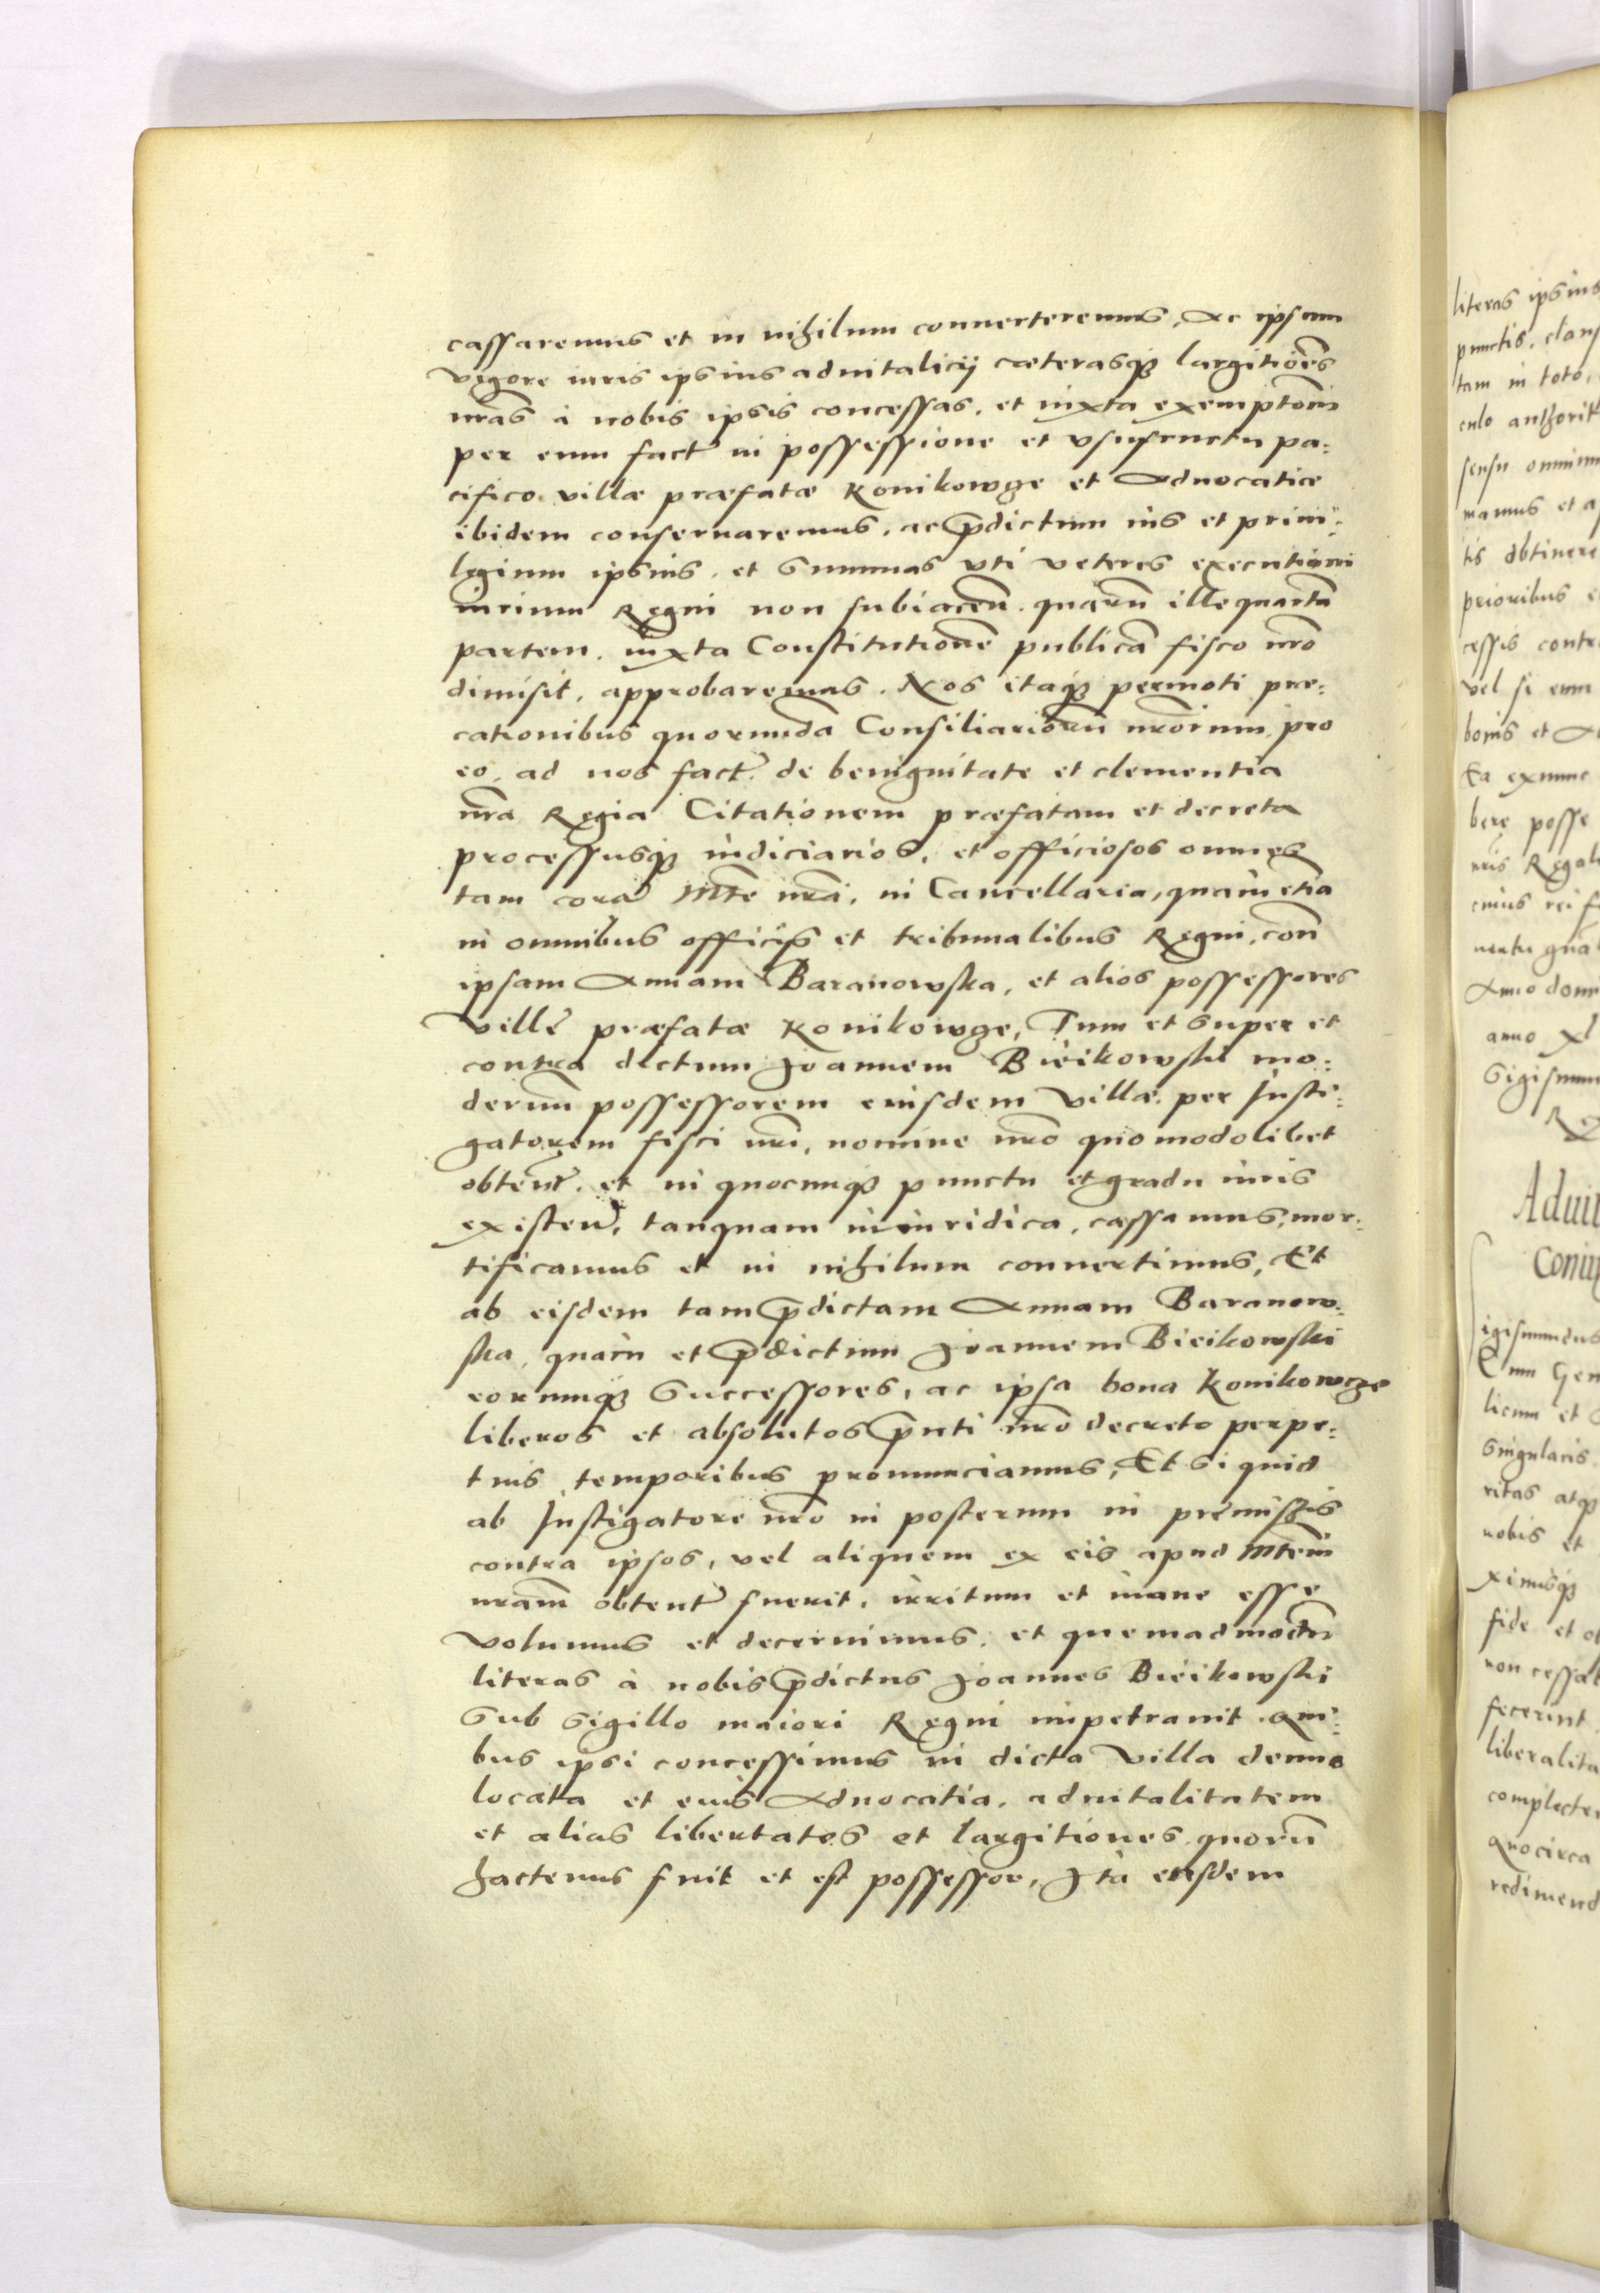 cassaremus et in nihilum conuerteremus, Ac ipsum
vigore iuris ipsius aduitalicij cæterasq3 largitiões
nrãs à nobis ipsis concessas, et iuxta exemptõem
per eum fact̃ in possessione et vsufructu pa:
cifico villæ præfatæ Konikowge et Aduocatiæ
ibidem conseruaremus, ac p̃dictum ius et priui:
legium ipsius, et Summas vti veteres executioni
iurium Regni non subiaceñ. quarũ ille quartã
partem, iuxta Constitutionẽ publicã fisco nrõ
dimisit, approbaremus. Nos itaq3 permoti præ:
cationibus quorundã Consiliariorũ nrõrum, pro
eo, ad nos fact̃. de benignitate et clementia
nrã Regia Citationem præfatam et decreta
processusq3 iudiciarios, et officiosos omnes
tam corã Mte nrã, in Cancellaria, quàm etiã
in omnibus officijs et tribunalibus Regni, coñ
ipsam Annam Baranowska, et alios possessores
Villẽ præfatæ Konikowge, Tum et super et
contra dictum Joannem Bieikowski mo:
dernũ possessorem eiusdem Villæ per Insti:
gatorem fisci nrĩ, nomine nrõ quomodolibet
obtent̃. et in quocunq3 punctu et gradu iuris
existeñ, tanquam iniuridica, cassamus, mor:
tificamus et in nihilum conuertimus, Et
ab eisdem tam p̃dictam Annam Baranow:
ska, quàm et p̃dictum Joannem Bieikowski
eorumq3 Successores, ac ipsa bona Konikowge
liberos et absolutos p̃nti nrõ decreto perpe:
tuis temporibus pronunciamus, Et si quid
ab Instigatore nrõ in posterum in premissis
contra ipsos, vel aliquem ex eis apud Mtem
nrãm obtent̃ fuerit, irritum et inane esse
volumus et decernimus, et quemadmodũ
literas à nobis p̃dictus Joannes Bieikowski
Sub Sigillo maiori Regni impetrauit. qui:
bus ipsi concessimus in dicta Villa denuo
locata et eius Aduocatia, aduitalitatem
et alias libertates et largitiones quorũ
hactenus fuit et est possessor, Ità eiusdem
literas ipsius
punctis, claus
tam in toto,
culo authorit
sensu omnium
mamus et a
tis obtinere
prioribus e
cessis contr
vel si eum
bonis et A
Ea exnunc
bere posse
nris Regal
cuius rei f
uentu gnãl
Anno domi
anno xl
Sigismun
Rex
Aduit
Coniu
igismundus
Cum Gen
licum et
singularis
ritas atq3
nobis et
ximusq3
fide et ob
non cessat
fecerint
liberalita
complecte
Quocirca
redimend